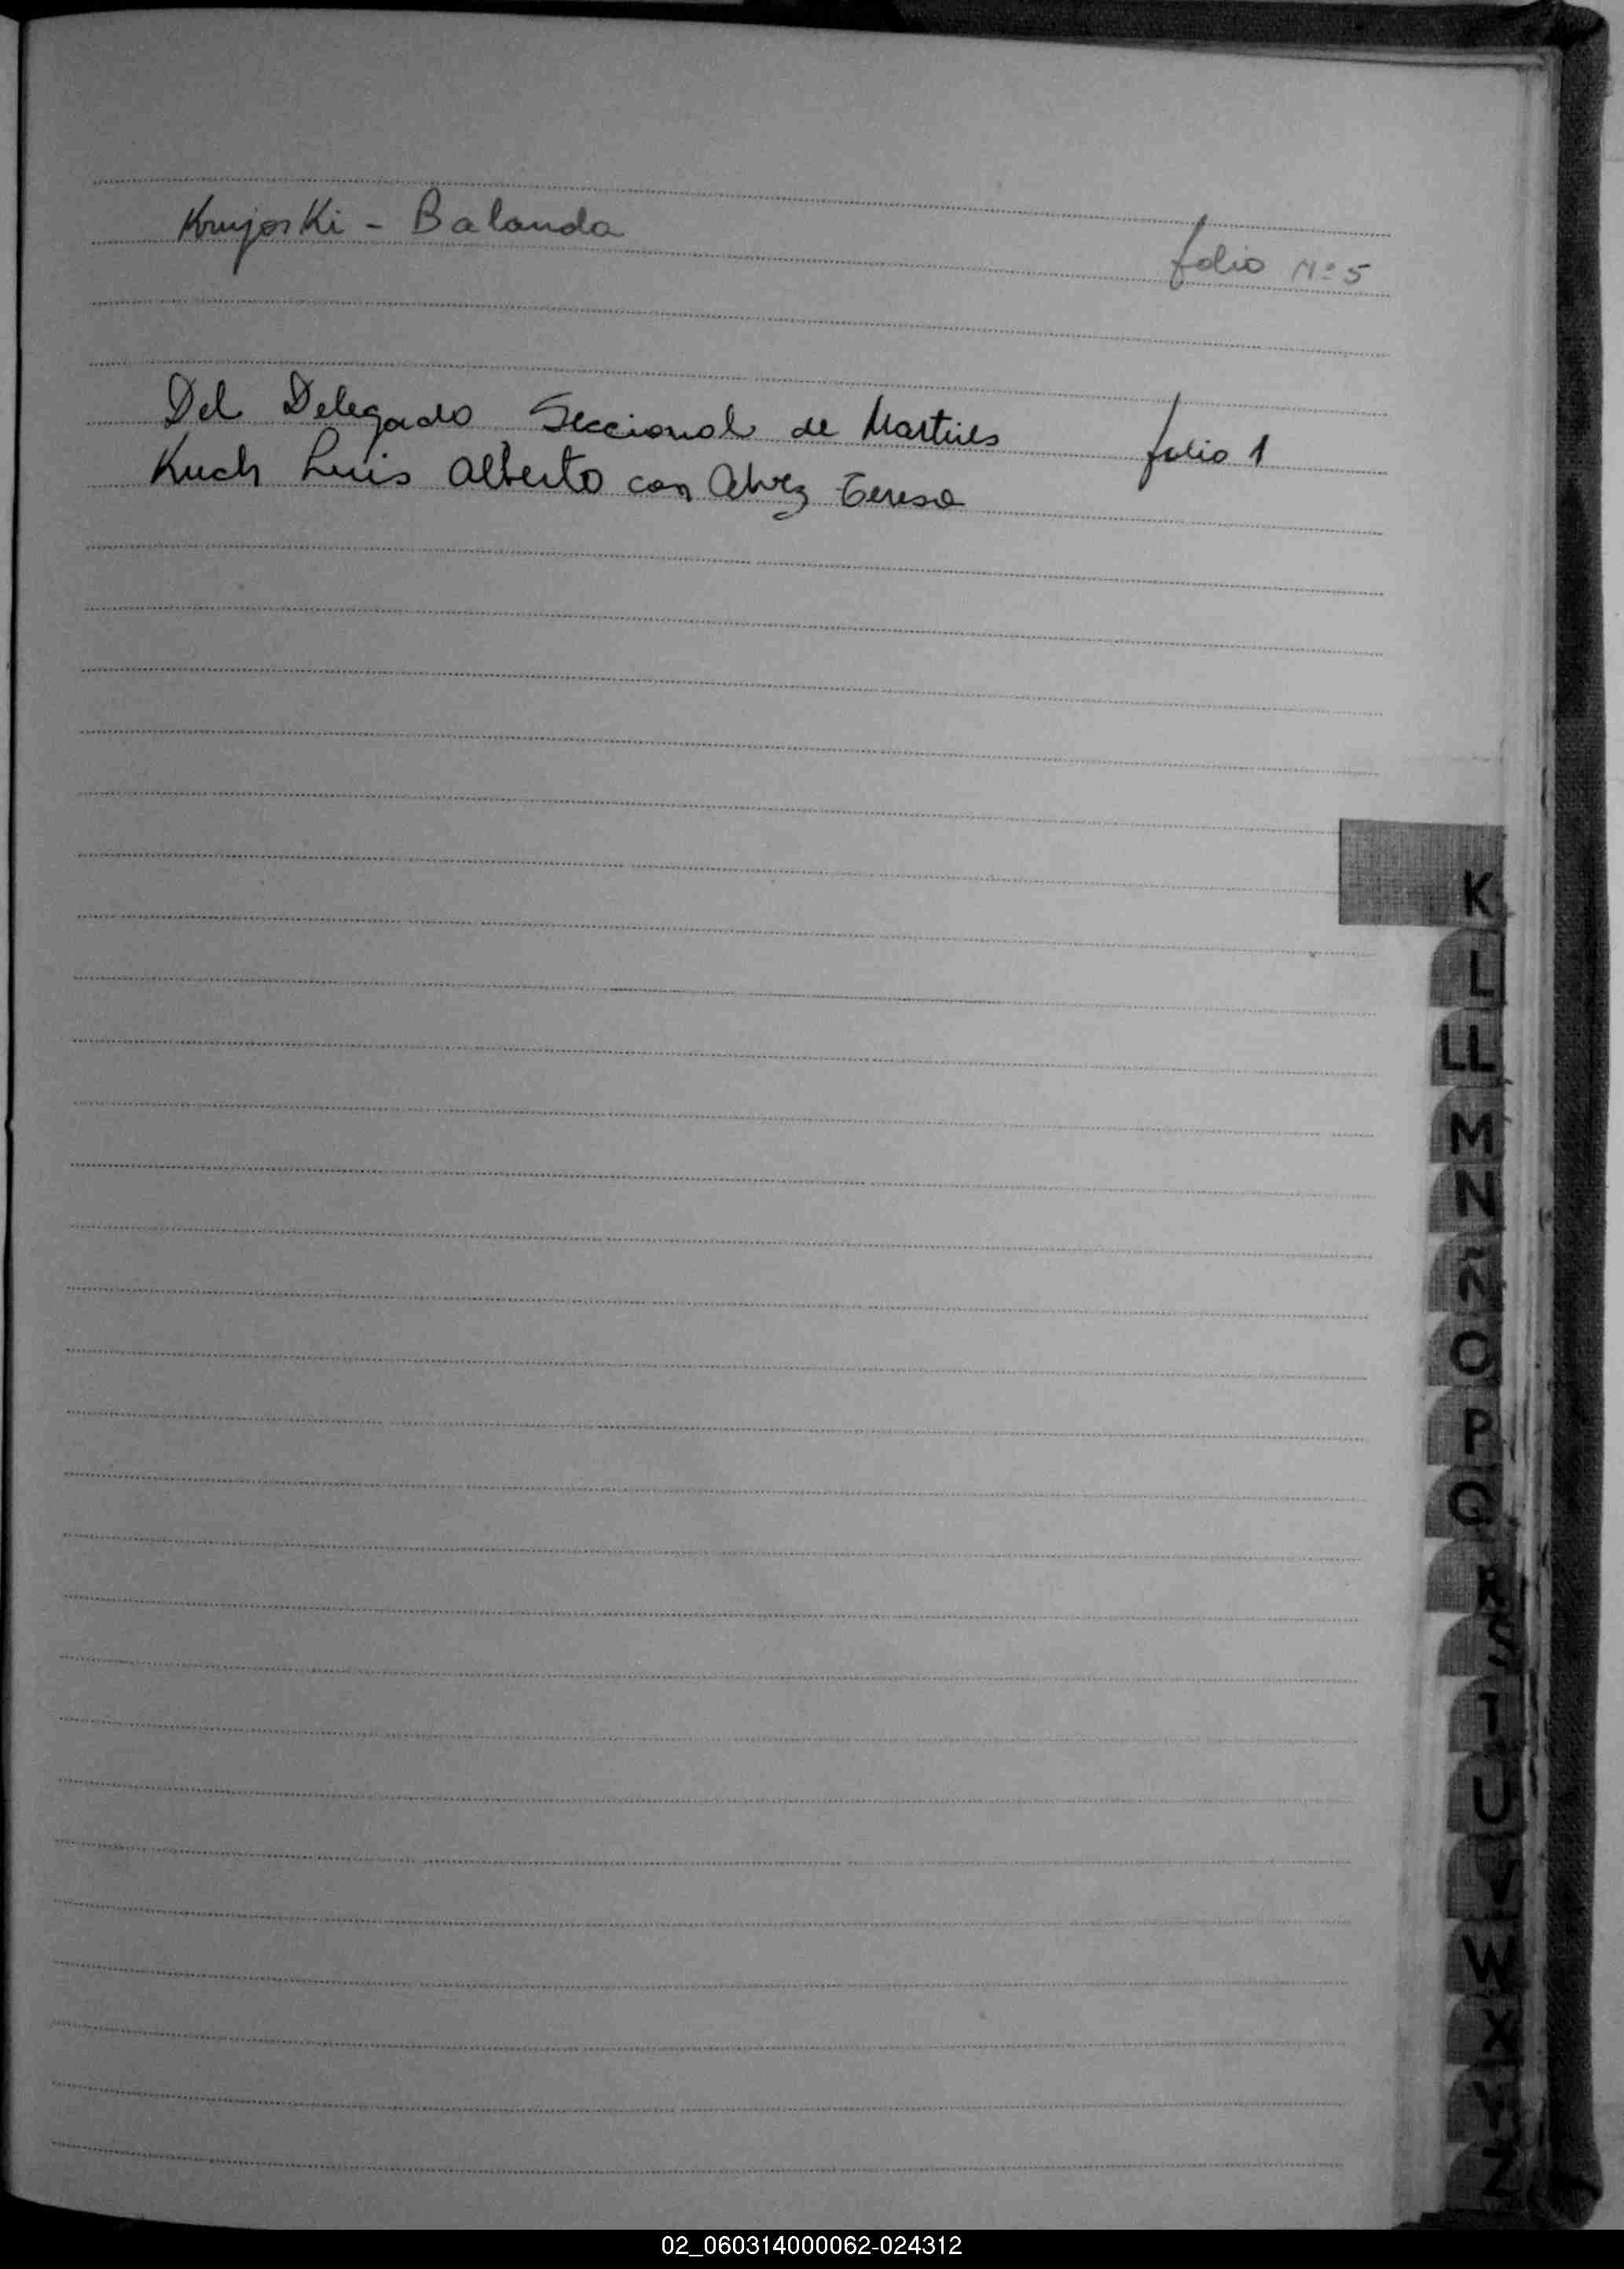 Krujoski - Balanda folio Nº 5
Del Delegado Seccional de Martires folio 1
Kuch Luis Alberto con Alvez Teresa
K
L
LL
M
N
Ñ
O
P
Q
R
S
T
U
V
W
X
Y
Z
02_060314000062-024312